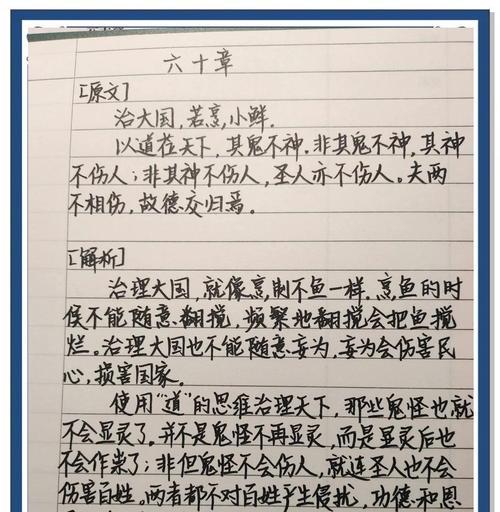 六十章
[原文]
治大国，若烹小鲜。
以道莅天下，其鬼不神。非其鬼不神，其神
不伤人；非其神不伤人，圣人亦不伤人。夫两
不相伤，故德交归焉。
[解析]
治理大国，就像烹制不鱼一样。烹鱼的时
侯不能随意翻搅，频繁地翻搅会把鱼搅
烂。治理大国也不能随意妄为，妄为会伤害民
心，损害国家。
使用“道”的思维治理天下，那些鬼怪也就
不会显灵了。并不是鬼怪不再显灵，而是显灵后也
不会作祟了；非但鬼怪不会伤人，就连圣人也不会
伤害百姓。两者都不对百姓产生侵扰，功德和恩